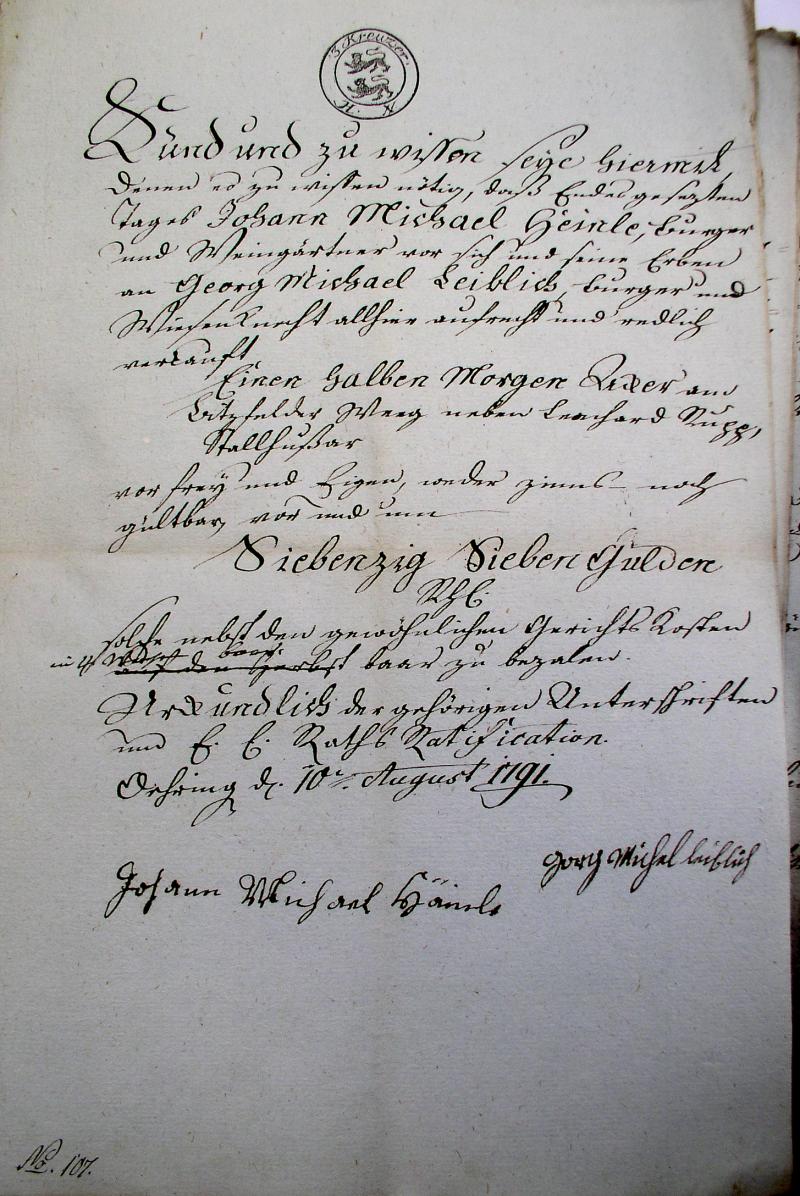 3 Kreuzer.
H. N
Kund und zu wissen seye hiermit,
denen es zu wissen nötig, daß Endesgesezten
Tages Johann Michael Heinle, burger
und Weingärtner vor sich und seine Erben
an Georg Michael Leiblich, burger und
Wiesenknecht allhier aufrecht und redlich
verkauft
Einen halben Morgen Acker am
Weeg neben Leonhard Rupp,
Stallhußar
vor frey und Eigen, weder zinns- noch
gültbar, vor und um
Siebenzig Sieben Gulden
Rhl.
solche nebst den gewöhnlichen Gerichts Kosten
in 4 Wochen
auf den Herbst baar zu bezalen.
Urkundlich der gehörigen Unterschriften
und E. E. Raths Ratification.
Oehring d. 10. August 1791.
Gorg Michel leiblich
Johann Michael Häinle
No. 107.